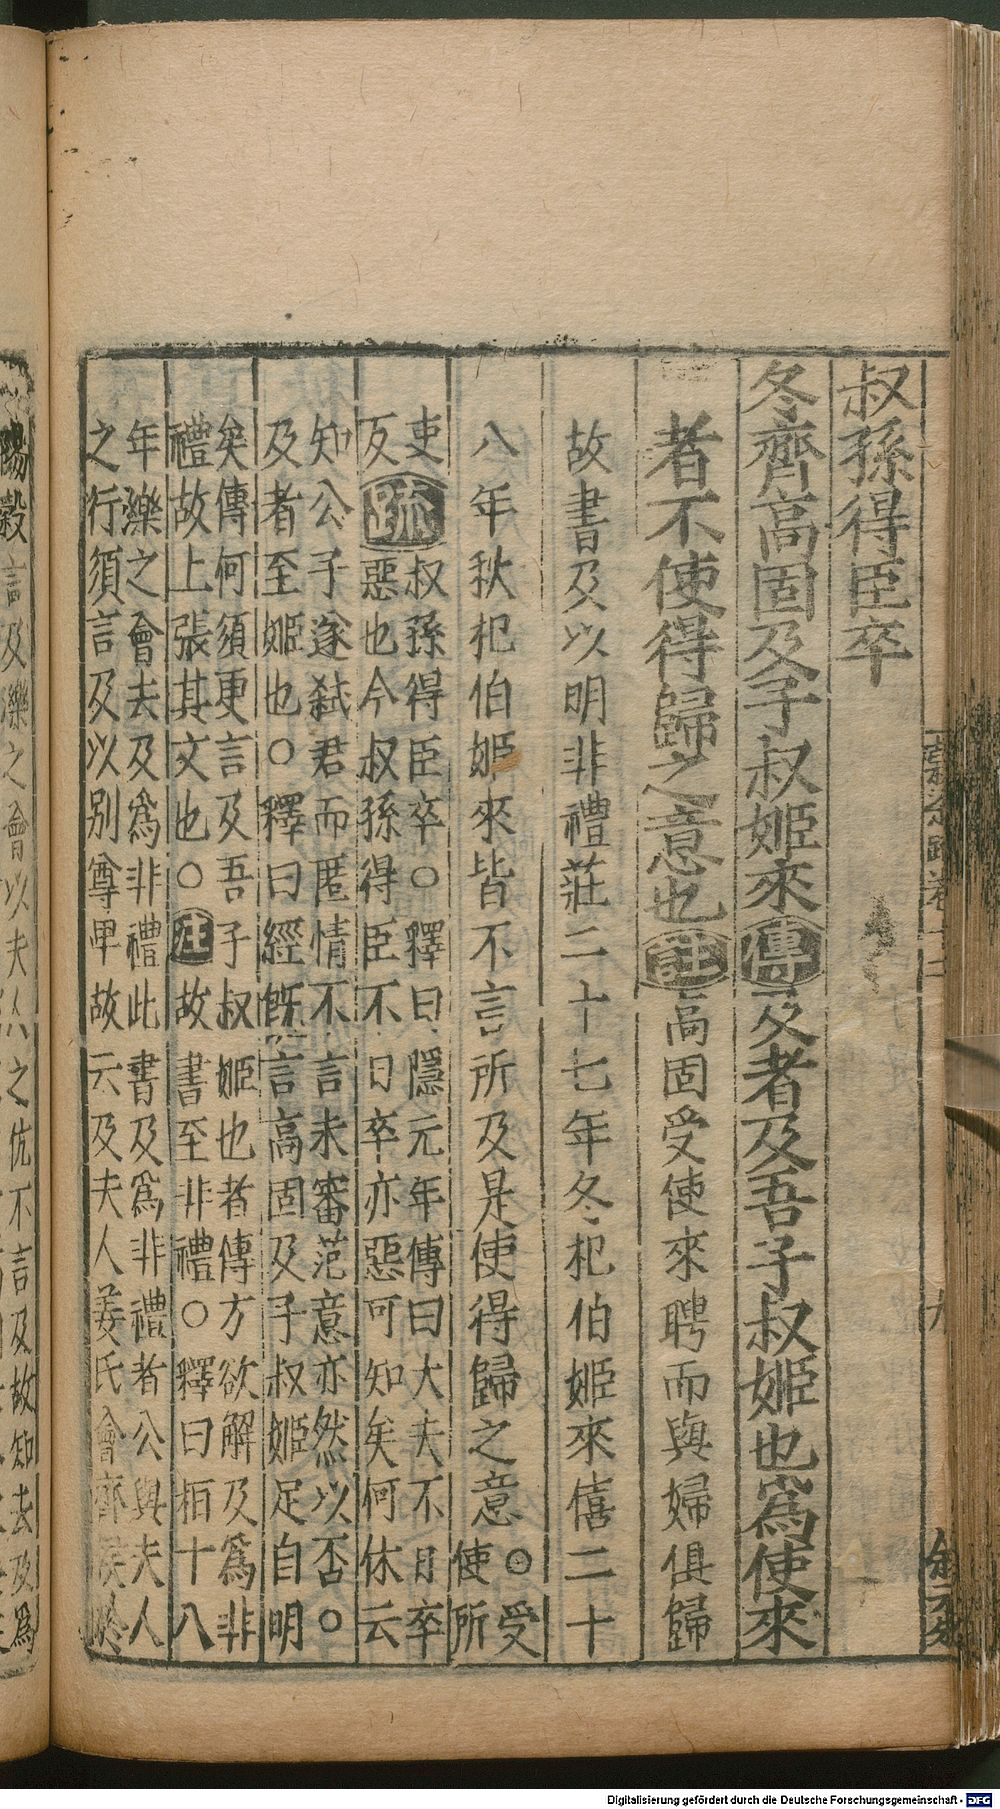 叔孫得臣卒
冬齊高固及子叔姬來傳及者及吾子叔姬也爲使來
者不使得歸之意也註高固受使來聘而與婦俱歸
故書及以明非禮莊二十七年冬杞伯姬來僖二十
八年秋杞伯姬來皆不言所及是使得歸之意○受
使所
吏反疏叔孫得臣卒○釋曰隱元年傳曰大夫不日卒
惡也今叔孫得臣不日卒亦惡可知矣何休云
知公子遂弒君而匿情不言未審范意亦然以否○
及者至姬也○釋曰經旣言高固及子叔姬足自明
矣傳何須更言及吾子叔姬也者傳方欲解及爲非
禮故上張其文也○注故書至非禮○釋曰桓十八
年濼之會去及爲非禮此書及爲非禮者公與夫人
之行須言及以別尊卑故云及夫人姜氏會齊侯於
Digitalisierung gefördert durch die Deutsche Forschungsgemeinschaft - DFG